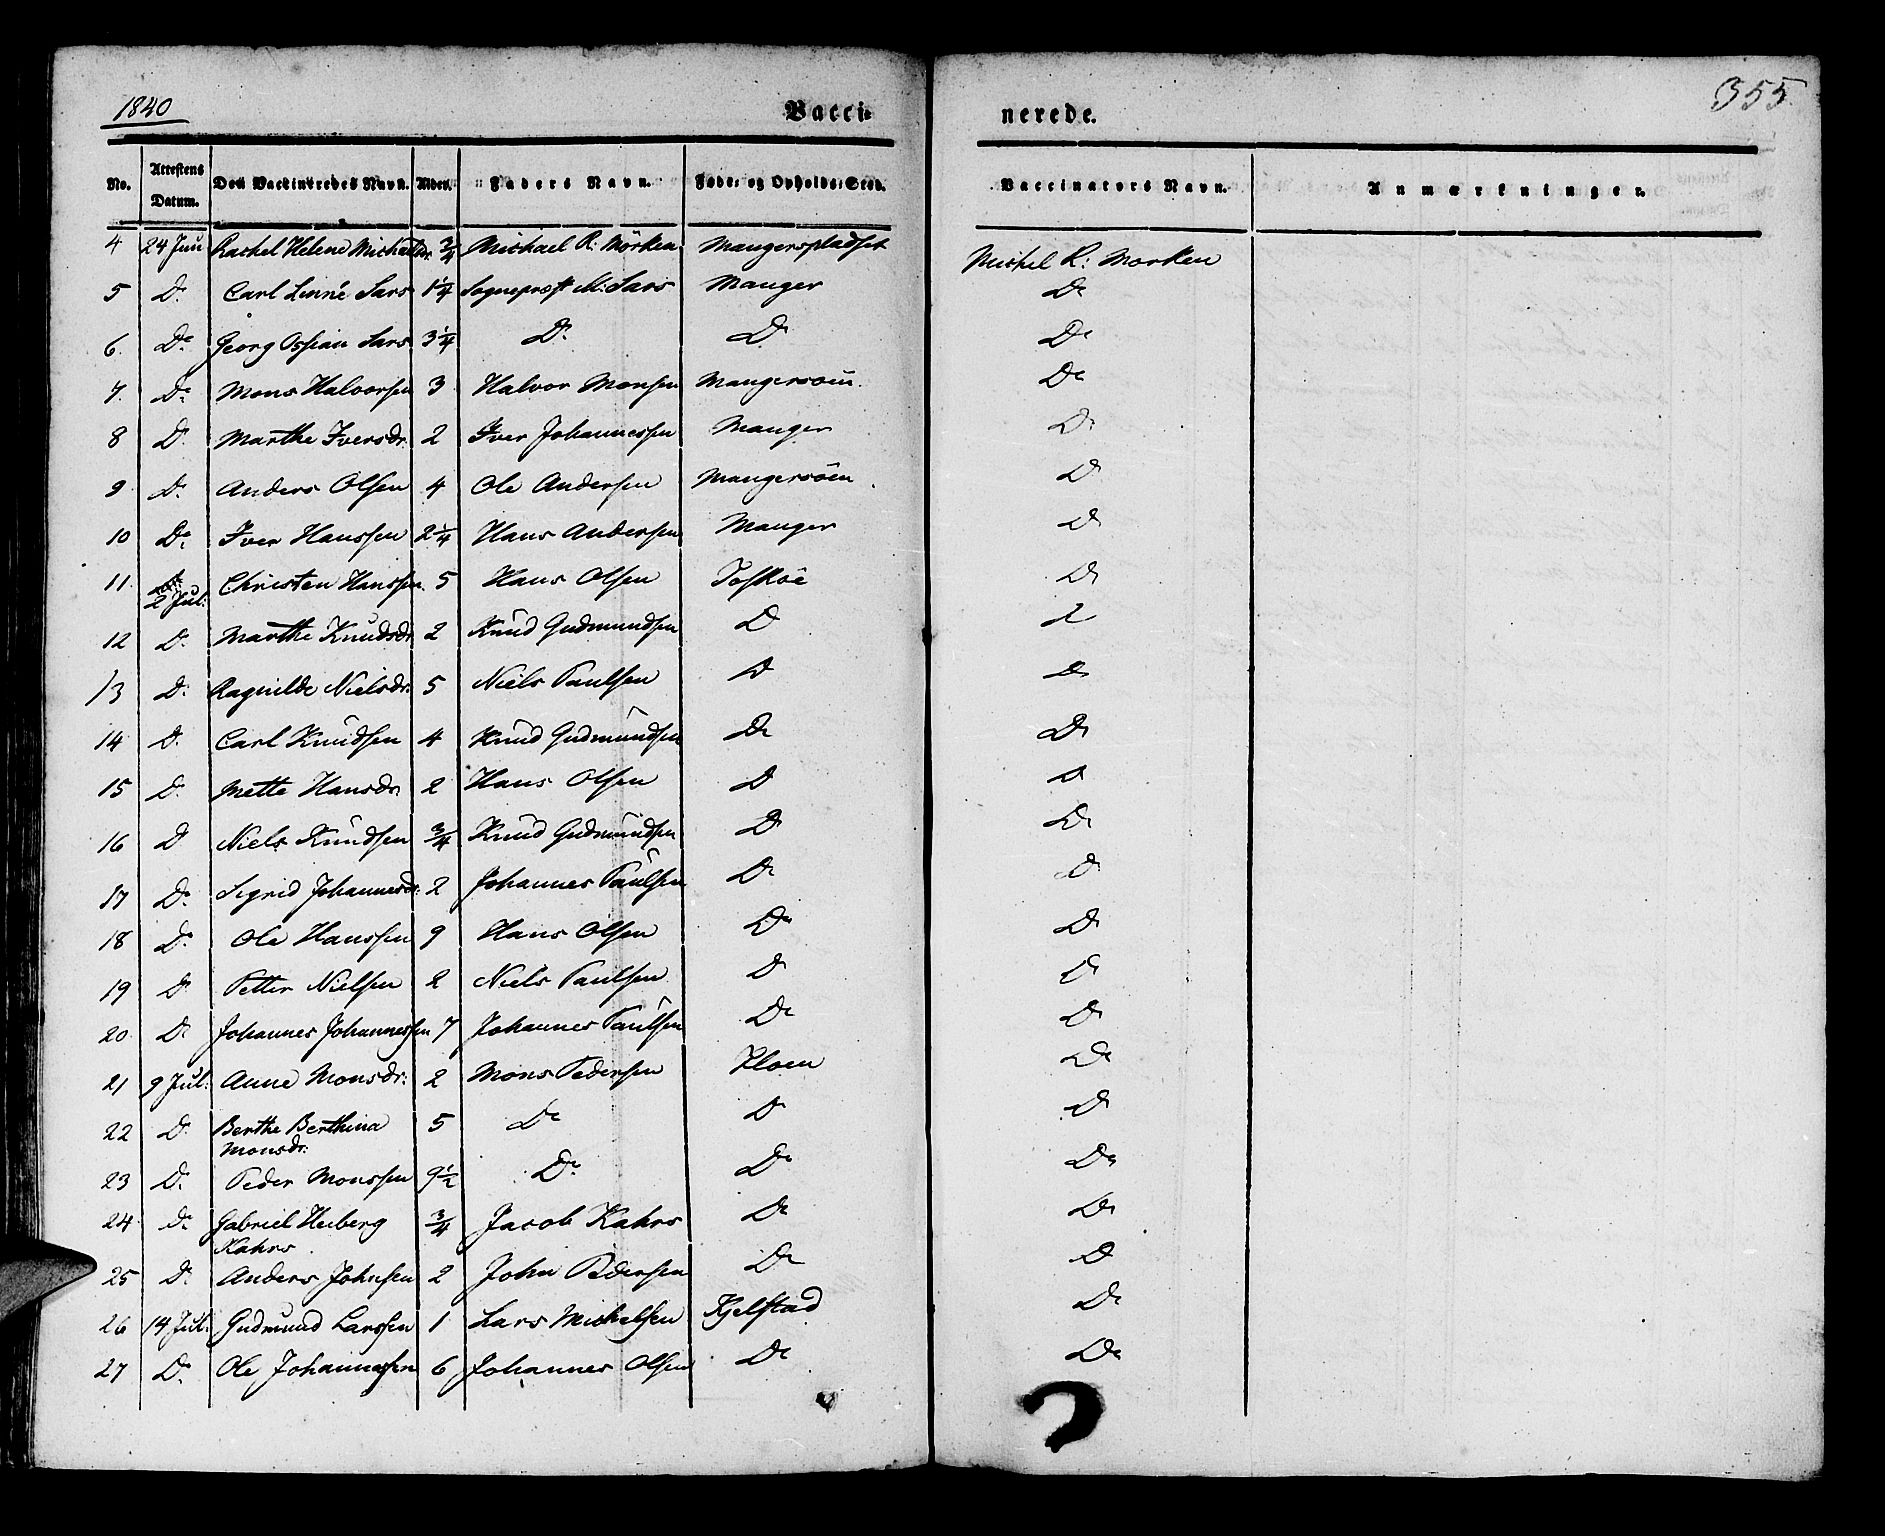 1840
Vacci-
nerede.
355
No. | Attestens Datum. | Den Vaccineredes Navn. | Alder. | Faders Navn. | Føde- og Opholds-Sted. | Vaccinators Navn. | Anmærkninger.
4 | 24 Juni | Rachel Helene Michaelsdr. | 3/4 | Michael R: Mörken | Mangerspladset | Michel R: Morken
5 | Do | Carl Linné Sars | 1 1/4 | Sognepræst M: Sars | Manger | Do
6. | Do | Georg Ossian Sars | 3 1/4 | Do | Do | Do
7. | Do | Mons Halvorsen | 3 | Halvor Monsen | Mangersöin. | Do
8 | Do | Marthe Iversdr. | 2 | Iver Johannessen | Manger | Do
9 | Do | Anders Olsen | 4 | Ole Andersen | Mangersöen. | Do
10 | Do | Iver Hanssen | 2 1/4 | Hans Andersen | Manger | Do
11. | 2 Jul: | Christen Hanssen. | 5 | Hans Olsen | Toskøe | Do
12 | Do | Marthe Knudsdr. | 2 | Knud Gudmundsen | Do | Do
13 | Do | Ragnilde Nielsdr. | 5 | Niels Paulsen | Do | Do
14 | Do | Carl Knudsen | 4 | Knud Gudmundsen | Do | Do
15 | Do | Mette Hansdr. | 2 | Hans Olsen | Do | Do
16 | Do | Niels Knudsen | 3/4 | Knud Gudmundsen | Do | Do
17 | Do | Sigrid Johannesdr. | 2 | Johannes Paulsen | Do | Do
18 | Do | Ole Hanssen | 9 | Hans Olsen | Do | Do
19 | Do | Petter Nielsen | 2 | Niels Paulsen | Do | Do
20 | Do | Johannes Johannessen | 7 | Johannes Paulsen | Do | Do
21 | 9 Jul: | Anne Monsdr: | 2 | Mons Pedersen | Floen | Do
22 | Do | Berthe Berthina | 5 | Do | Do | Do
Monsdr:
23 | Do | Peder Monssen | 9 1/2 | Do | Do | Do
24 | Do | Gabriel Heiberg | 3/4 | Jacob Kahrs | Do | Do
Kahrs.
25 | Do | Anders Johnsen | 2 | John Pedersen | Do | Do
26 | 14 Jul: | Gudmund Larssen | 1 | Lars Michelsen | Kjelstad | Do
27 | Do | Ole Johannessen | 6 | Johannes Olsen | Do | Do